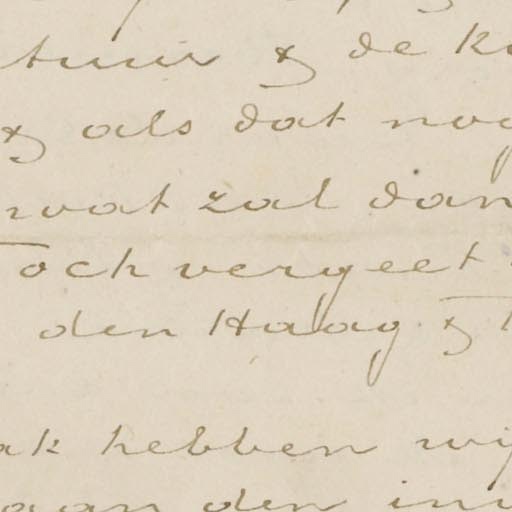 tuur & de k
& als dat nog
wat zal dan
Toch vergeet
den Haag &
ak hebben wij
aan den in